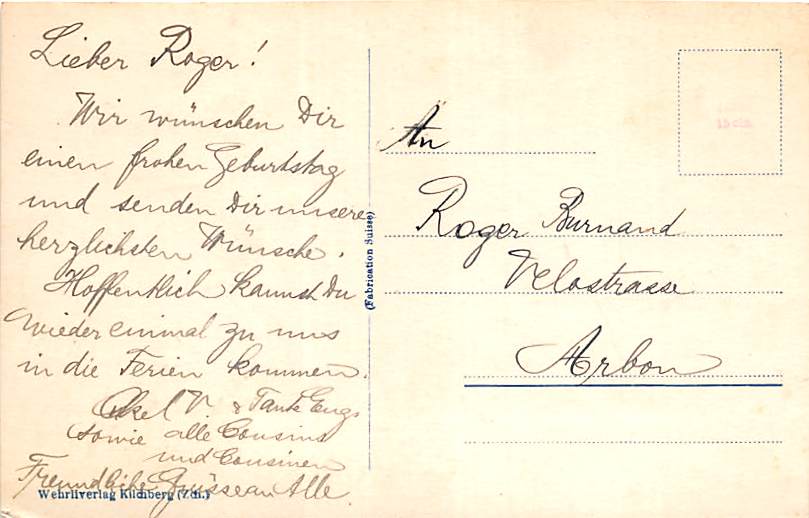 Lieber Roger!
Wir wünschen Dir
einen frohen Geburtstag
und senden Dir unsere
herzlichsten Wünsche.
Hoffentlich kannst Du
wieder einmal zu uns
in die Ferien kommen.
Onkel V. & Tante
sowie alle Cousins
und Cousinen
Freundliche Grüsse an Alle.
Wehrliverlag Kilchberg (Zch.)
(Fabrication Suisse)
An
Roger Burnand
Velostrasse
Arbon